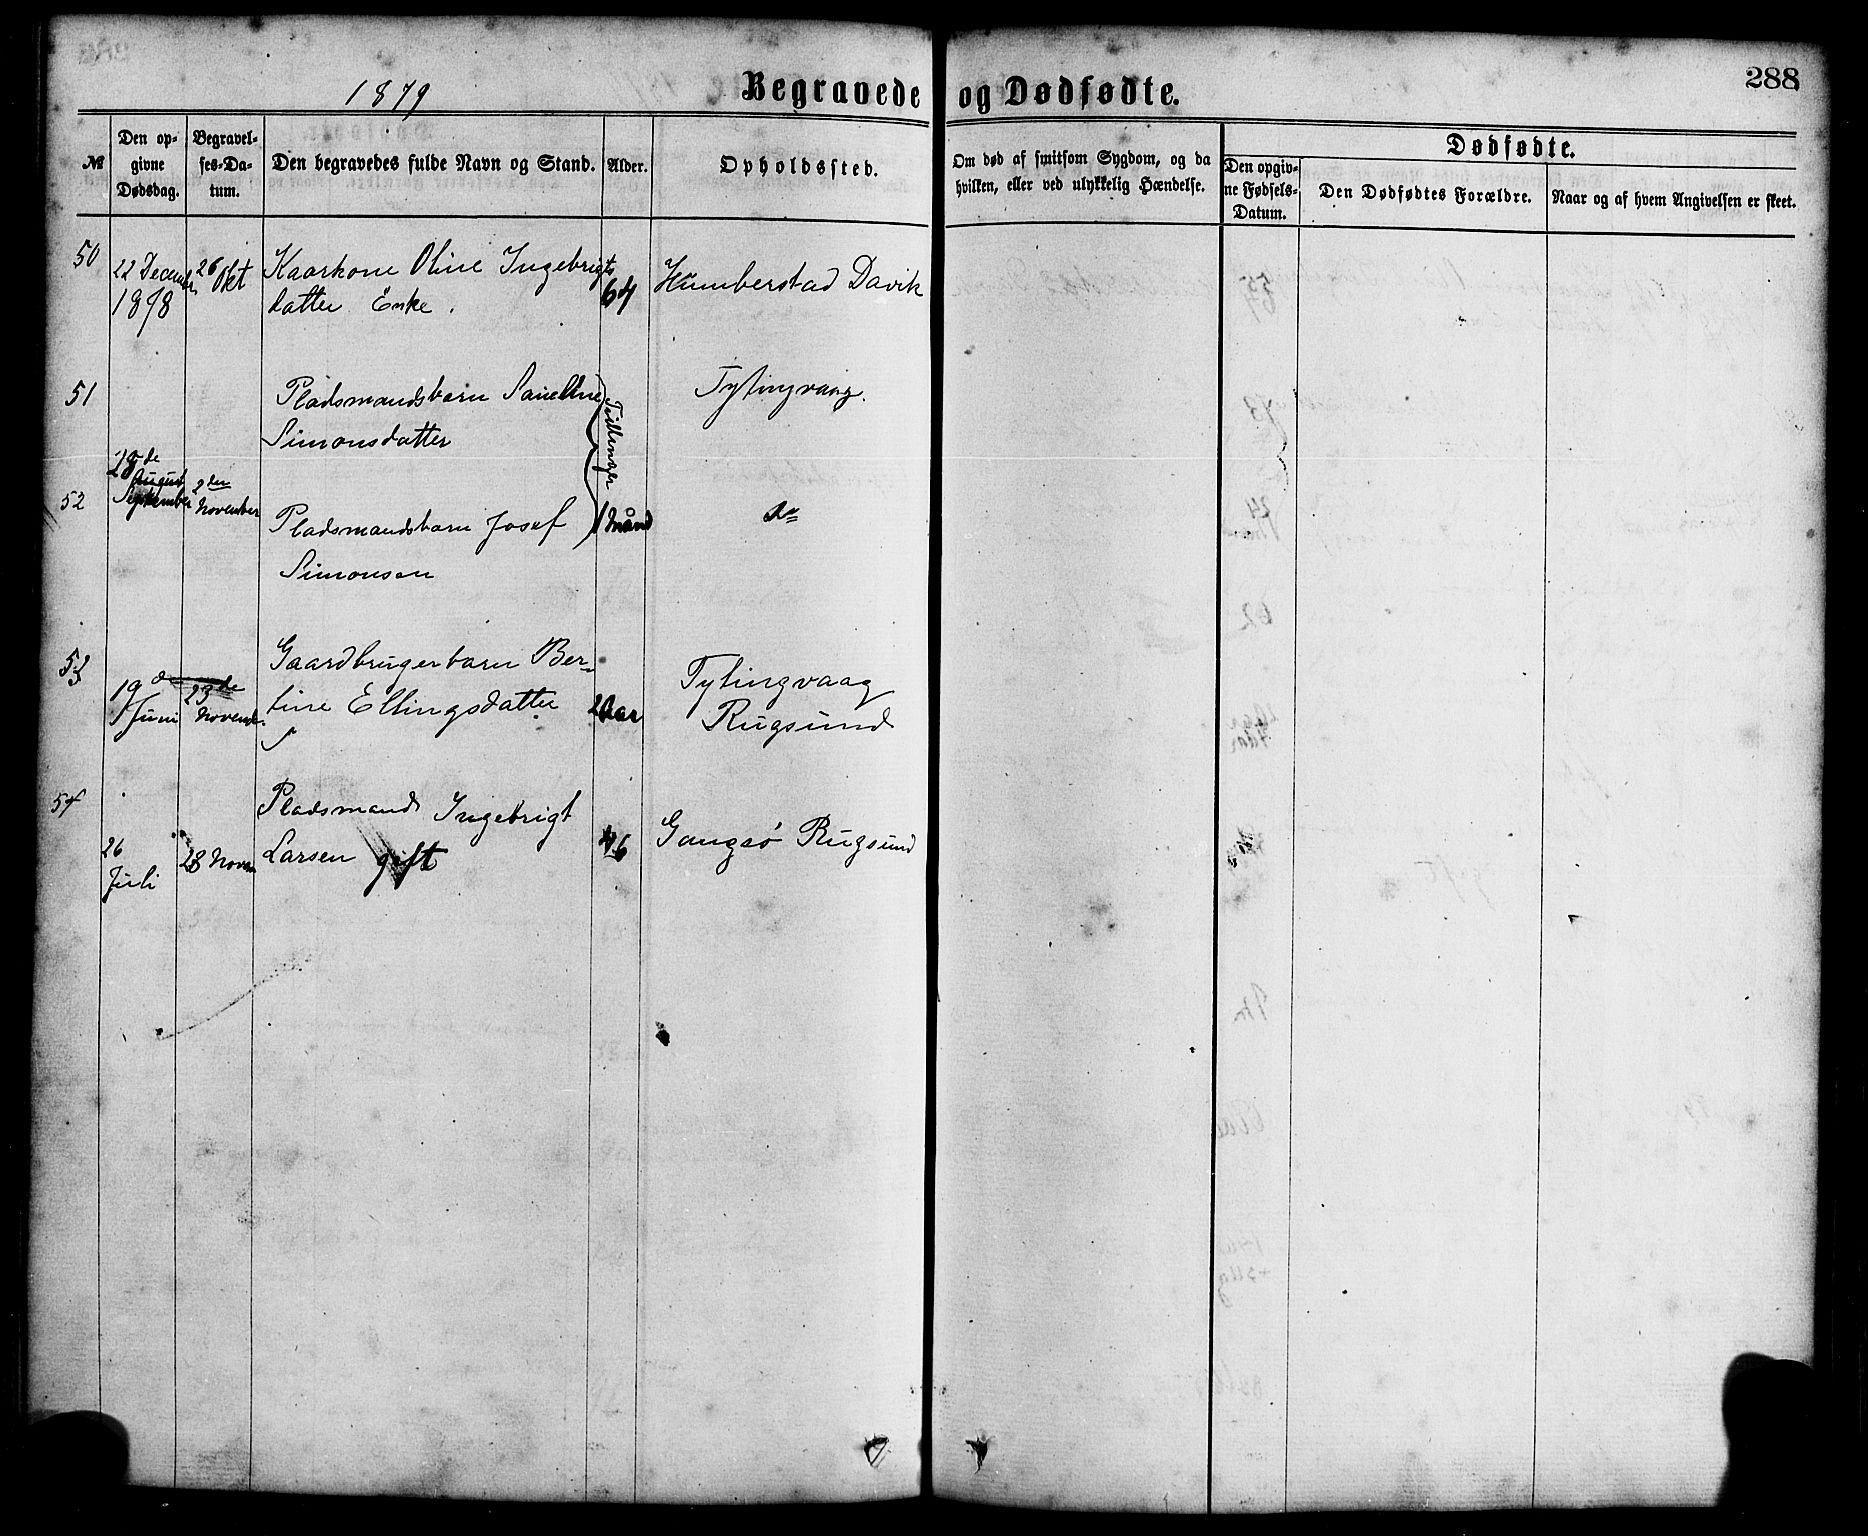 288
1879 Begravede og Dødfødte.
№
Den opgivne Dødsdag.
Begravelses-Datum.
Den begravedes fulde Navn og Stand.
Alder.
Opholdssted.
Om død af smitsom Sygdom, og da hvilken, eller ved ulykkelig Hændelse.
Dødfødte.
Den opgivne Fødsels-Datum.
Den Dødfødtes Forældre.
Naar og af hvem Angivelsen er skeet.
50 22 Decembr 26 Okt Kaarkone Oline Ingebrigts 64 Humberstad Davik
1878 datter Enke.
51 Pladsmandsbarn Tvillinger Tytingvaag.
Simonsdatter
28de August September 2den November
52 Pladsmandsbarn Josef 1 Månd do
Simonsen
53 Gaardbrugerbarn Ber-
19de Juni 23de Novemb. tine Ellingsdatter 2 Aar Tytingvaag
Rugsund
54 Pladsmand Ingebrigt
26 Juli 28 Novem Larsen gift 46 Gangsø Rugsund